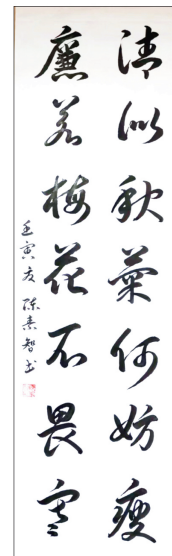 清似秋菊何妨瘦
廉若梅花不畏寒
壬寅友陈素智书